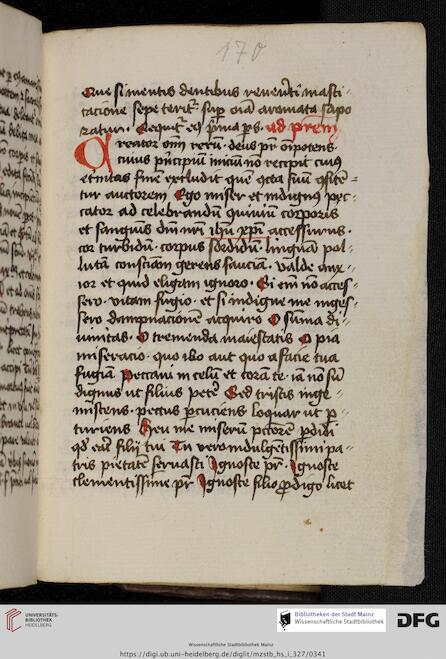 170
Que si mentis dentibus reverēti masti
catione sepe terit̄ · sup̄ oīa aromata sapo
ratur · Sequit̄ eꝰ p̄ma ps · ad p̄rem
Creator om̄ rerū · deus pr̄ oīpotens
cuius principiū iniciū nō recipit cuiꝰ
et̄nitas finē excludit quē
tur auctorem Ego miser et indignꝰ pec
cator ad celebrandū corporis
et sanguis dn̄i nr̄i ihū xp̄i accessurus ·
cor turbidū · corpus sordidū · linguā pol
lutā consciam gerens sauciā · valde anx
ior et quid eligam ignoro · Si em̄ nō acces
sero · vitam fugio · et si indigne me inges
sero dampnacionē acquiro O sūma di
uinitas · O tremenda maiestatis O pia
miseracio · quo ibo aut quo a facie tua
fugiā Peccaui in celū et corā te · iā nō sū
dignus ut filius Sed tristis inge
miscens · pectus p̄cuciens loquar ut p̄
turiens Heu me miserū pctōrē p̄didi
qd̄ filii tui Tu vero indulgētissimi pa
tris pietatē seruasti Ignosce pr̄ · Ignosce
clementissime pr̄ Ignosce filio prodigo licet
UNIVERSITÄTS-
BIBLIOTHEK
HEIDELBERG
Bibliotheken der Stadt Mainz
Wissenschaftliche Stadtbibliothek
DFG
Wissenschaftliche Stadtbibliothek Mainz
https://digi.ub.uni-heidelberg.de/diglit/mzstb_hs_i_327/0341